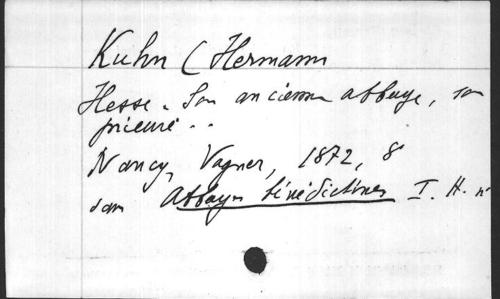 Kuhn (Hermann
Hesse. Son ancienne abbaye, son
prieuré..
Nancy, Vagner, 1872, 8
dans Abbayes bénédictines I. H. n